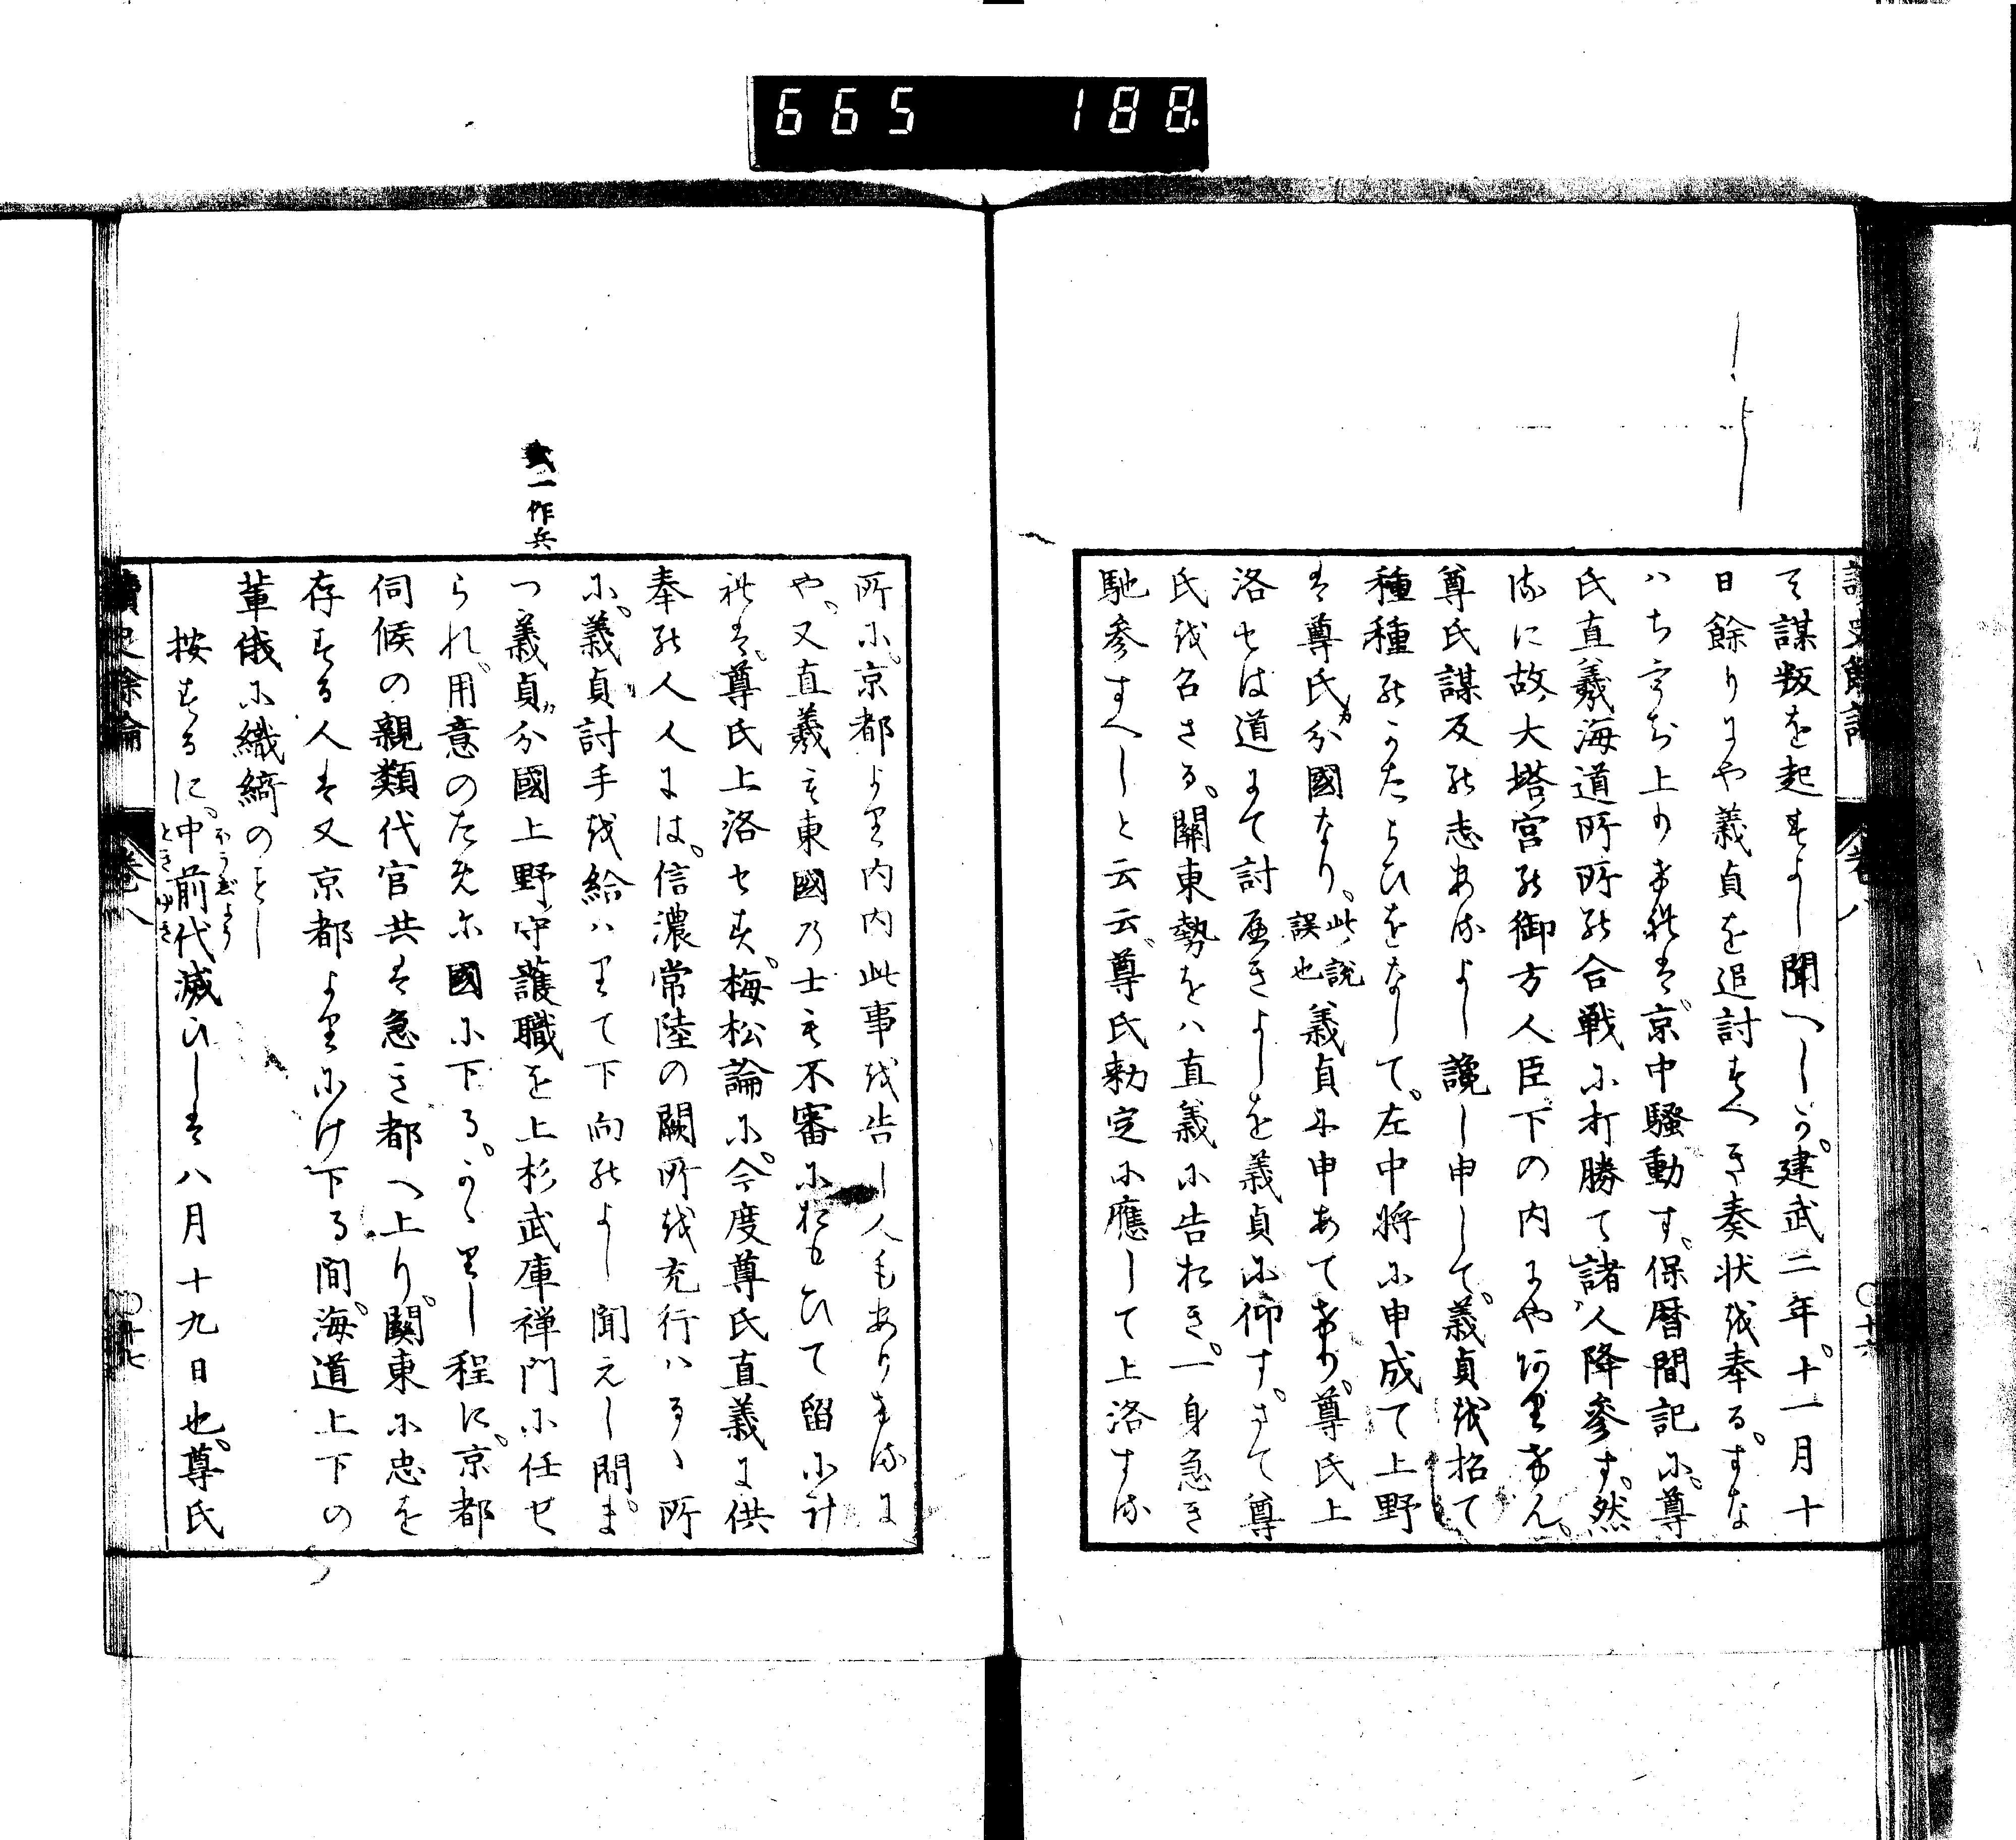 665 188
讀史餘論 卷八 〇十六
て謀叛を起すよし聞へしか。建武二年。十一月十
日餘りにや義貞を追討すへき奏状を奉る。すな
ハち
上りけれは。京中騒動す。保暦間記に。尊
氏直義海道所所の合戦に打勝て諸人降參す。然
るに故大塔宮の御方人臣下の内にや有けん。
尊氏謀反の志あるよし讒し申して。義貞を招て
種種のかたらひをなして。左中将に申成て上野
は尊氏か分國なり。此説誤也 義貞に申あてけり。尊氏上
洛せは道にて討へきよしを義貞に仰す。さて尊
氏を召さる。關東勢をハ直義に告おき。一身急き
馳参すへしと云云。尊氏勅定に應して上洛する
所に。京都より内内此事を告し人もありけるに
や。又直義も東國の士も不審におもひて留に計
れは。尊氏上洛せす。梅松論に。今度尊氏直義に供
奉の人人には。信濃常陸の闕所を充行ハるゝ所
に。義貞討手を給ハりて下向のよし聞えし間。ま
つ義貞か分國上野守護職を上杉武庫禅門に任せ
られ。用意のために國に下る。かゝりし程に。京都
伺候の親類代官共は急き都へ上り。關東に忠を
存する人は又京都よりにけ下る間。海道上下の
輩俄に織綺のことし
按するに。中前代滅ひしは八月十九日也。尊氏
ほうじよう
ときゆき
武一作兵
讀史餘論 卷八 〇十七